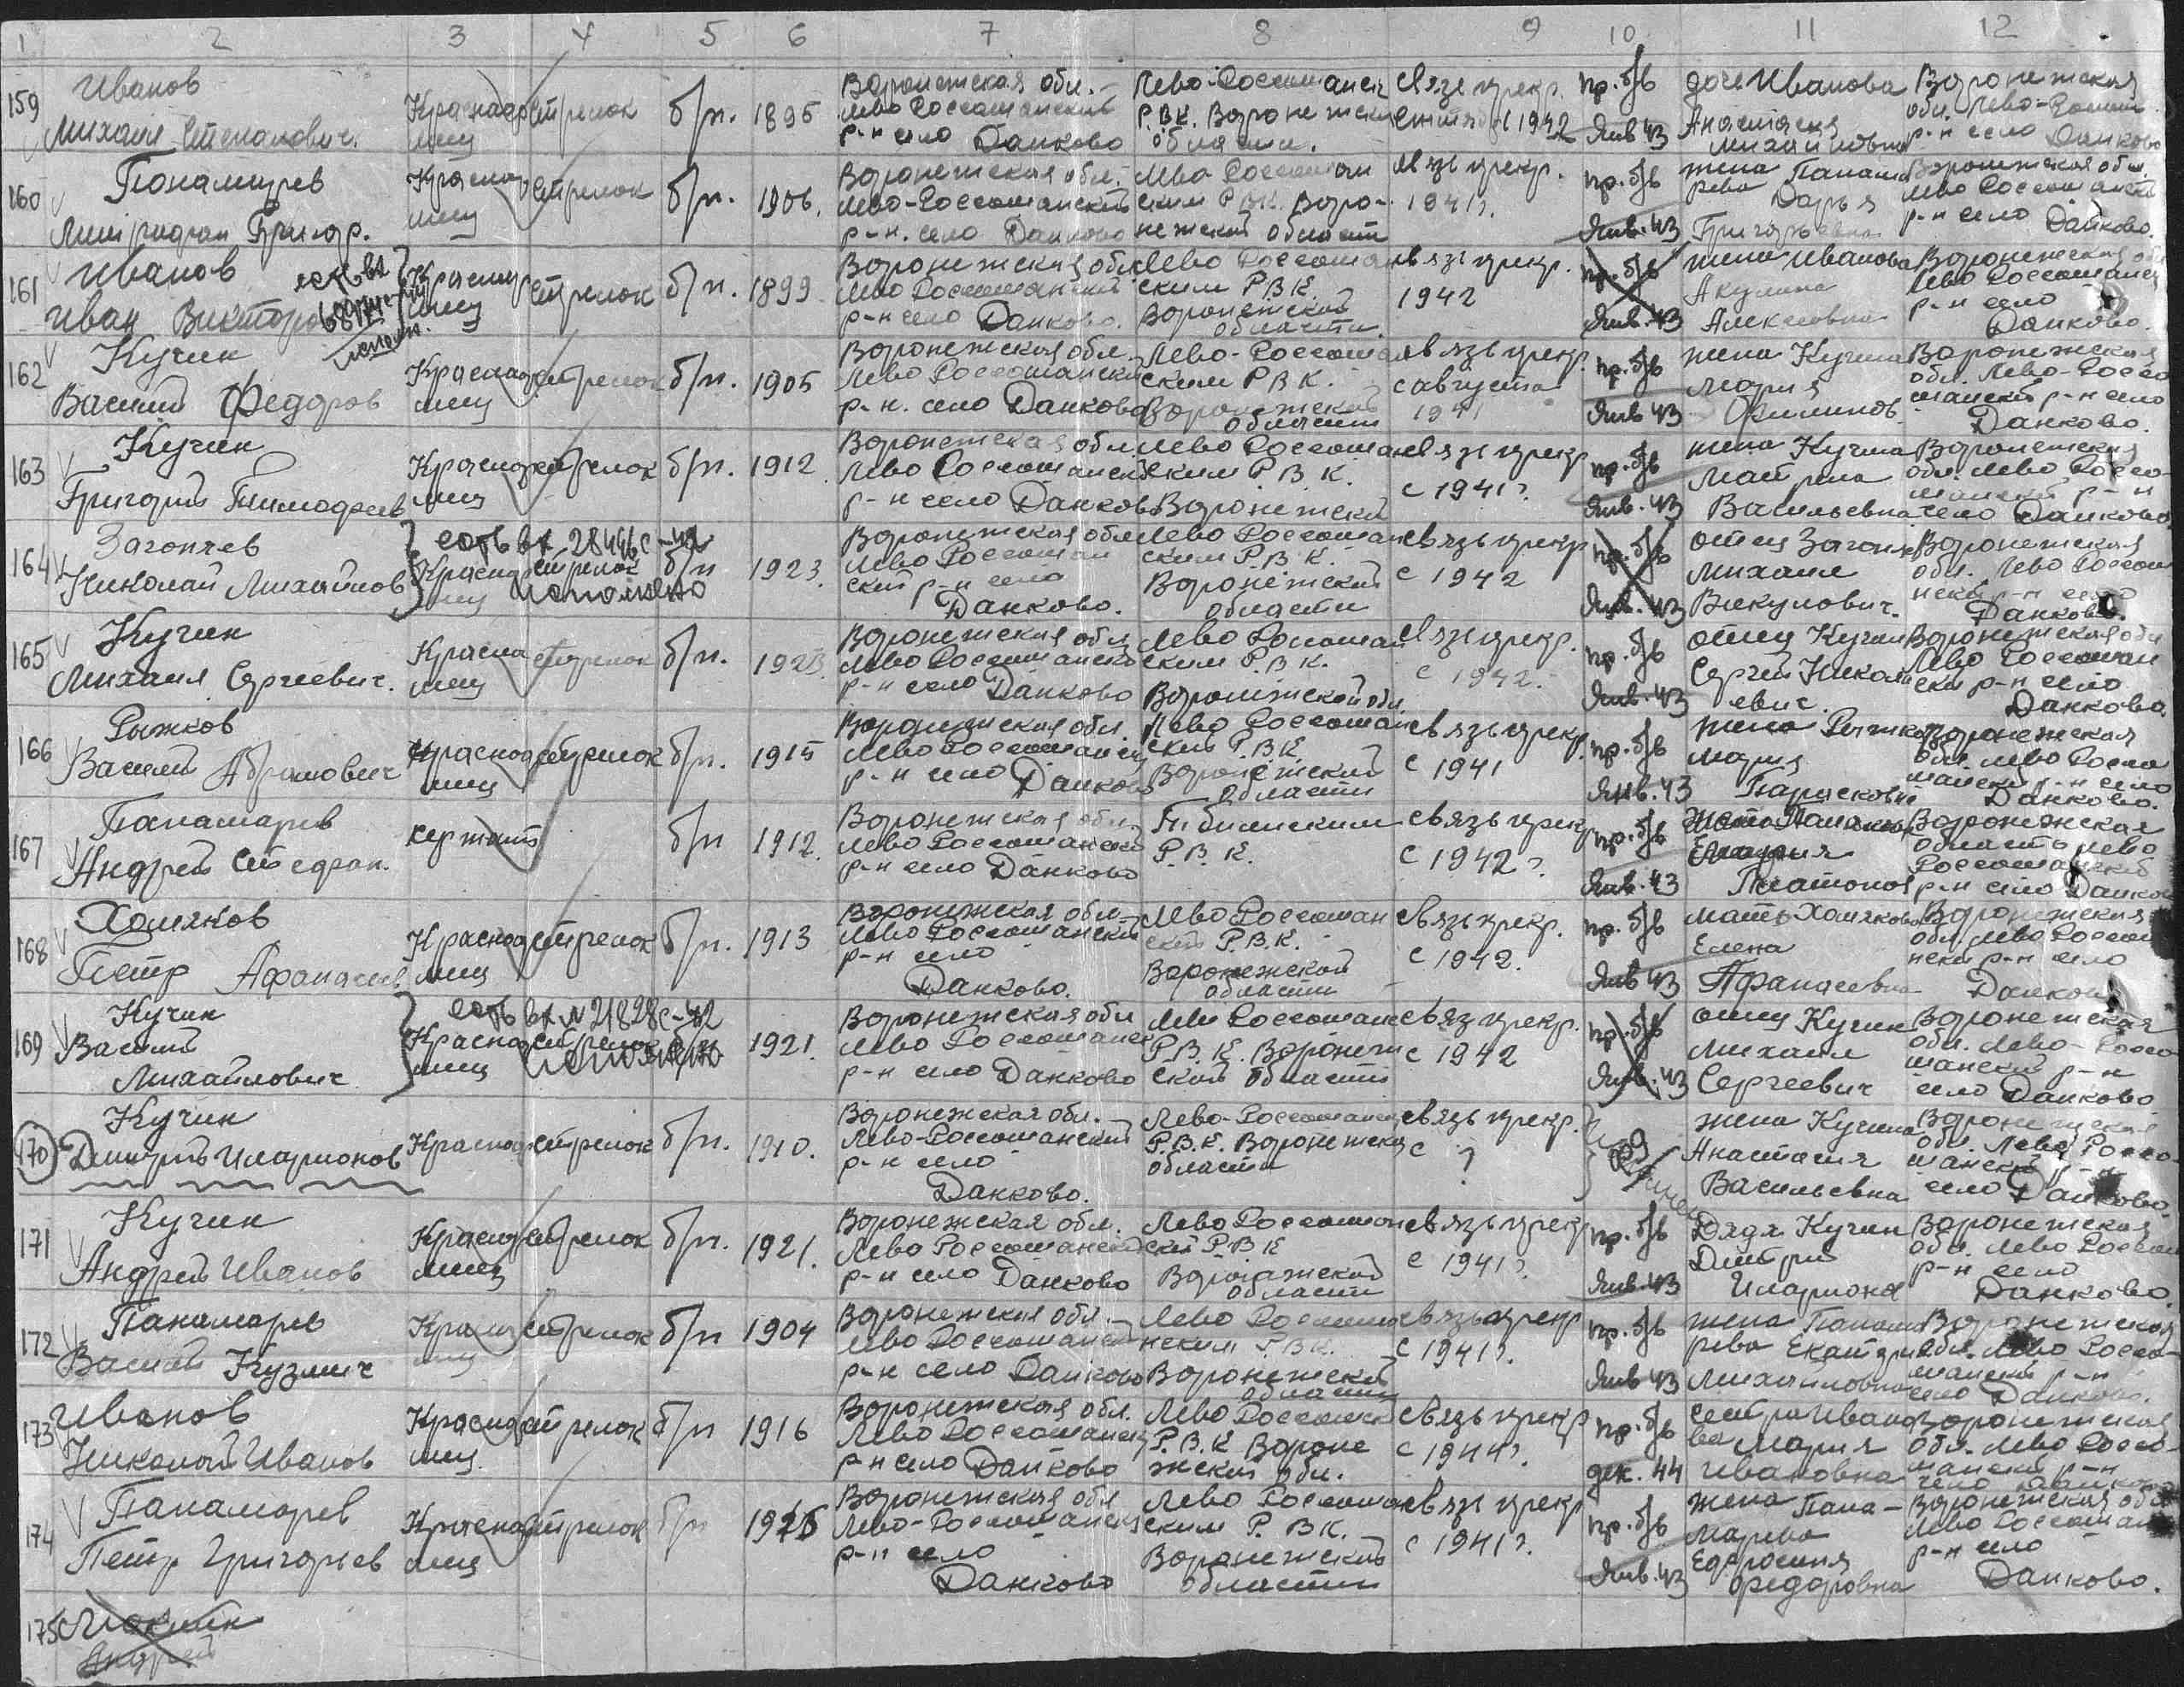 1 2 3 4 5 6 7 8 9 10 11 12
159 Иванов Михаил Степанович. Красноар меец стрелок б/п. 1895 Воронежская обл. Лево Россошанский р-н село Данково Лево-Россошанск Р.В.К. Воронежской области. связь прекр. сентябр 1942 пр. б/в Янв 43 дочь Иванова Анастасия Михайловна Воронежская обл. Лево-Россош р-н село Данково
160 Понамарев Митрофан Григор. Красно меец стрелок б/п. 1906. Воронежская обл. Лево-Россошанский р-н. село Данково Лево Россошан ским РВК. Воро- нежской области связь прекр. 1941г. пр. б/в Янв. 43 жена Панама рева Дарья Григорьевна Воронежская обл. Лево Россошанск р-н село Данково.
161 Иванов Иван Викторо есть вх исполн. Красно меец стрелок б/п. 1899 Воронежская обл. Лево Россошанский р-н село Данково. Лево Россошан ским Р.В.К. Воронежской области. связь прекр. 1942 пр. б/в Янв. 43 жена Иванова Акулина Алексеевна Воронежская обл Лево Россошанс р-н село Данково.
162 Кучин Василий Федоров Красноар меец стрелок б/п. 1905 Воронежская обл. Лево Россошански р-н. село Данково Лево-Россоша ским РВК. Воронежской области связь прекр. с августа 1941 пр. б/в Янв 43 жена Кучина Мария Воронежская обл. Лево-Россо шанский р-н село Данково.
163 Кучин Григорий Тимофеев Красноар меец стрелок б/п. 1912 Воронежская обл. Лево Россошанск р-н село Данково Лево Россошан ским Р.В.К. Воронежской связь прекр с 1941г. пр. б/в Янв. 43 жена Кучина Матрена Васильевна Воронежская обл. Лево Россо- шанский р-н село Данково
164 Загонаев Николай Михайлов есть вх 28446с-42 Красноар меец стрелок б/п исполнено 1923. Воронежская обл Лево Россошан ский р-н село Данково. Лево Россошан ским Р.В.К. Воронежской области связь прекр с 1942 пр. б/в Янв. 43 отец Загона Михаил Викулович. Воронежская обл. Лево Россош нский р-н село Данково.
165 Кучин Михаил Сергеевич. Красно меец стрелок б/п. 1923. Воронежская обл Лево Россошанско р-н село Данково Лево Россошан ским Р.В.К. Воронежской обл. связь прекр. с 1942. пр. б/в Янв. 43 отец Кучин Сергей Никола евич. Воронежская обл Лево Россошан ски р-н село Данково.
166 Рыжков Василий Абрамович Красноар меец стрелок б/п. 1915 Воронежская обл. Лево Россошанск р-н село Данково Лево Россошан ским Р.В.К. Воронежской области связь прекр. с 1941 пр. б/в Янв. 43 жена Рыжко Мария Воронежская обл. Лево Россо шанский р-н село Данково.
167 Панамарев Андрей Стефан. сержант б/п 1912. Воронежская обл. Лево Россошанский р-н село Данково Р.В.К. связь прекр с 1942г. пр. б/в Янв. 43 Платонов Воронежская область Лево Россошанский р-н село Данков
168 Хомяков Петр Афанасьев Красноар меец стрелок б/п. 1913 Воронежская обл. Лево Россошански р-н село Данково. Лево Россошан ским Р.В.К. Воронежской области связь прекр. с 1942. пр. б/в Янв 43 мать Хомякова Елена Афанасевна Воронежская обл Лево Россош нский р-н село Данков
169 Кучин Василий Михайлович есть вх. № 21828с-42 Красноар меец стрелок б/п исполнено 1921. Воронежская обл Лево Россошанск р-н село Данково Лево Россошанс Р.В.К. Воронеж ской области связь прекр. с 1942 пр. б/в Янв. 43 отец Кучин Михаил Сергеевич Воронежская обл. Лево-Россо шанский р-н село Данково
170 Кучин Дмитрий Иларионов Красноар стрелок б/п. 1910. Воронежская обл. Лево-Россошанский р-н село Данково. Лево-Россошанс Р.В.К. Воронежской области связь прекр. с ? жена Кучина Анастасия Васильевна Воронежская обл. Лево Россо- шанский р-н село Данково.
171 Кучин Андрей Иванов Красноар меец стрелок б/п. 1921. Воронежская обл. Лево Россошанский р-н село Данково Лево Россошан ский Р.В.К Воронежской области связь прекр с 1941г. пр. б/в Янв. 43 Дядя Кучин Дмитрий Иларионов Воронежская обл. Лево Россош р-н село Данково.
172 Панамарев Василий Кузмич Красно меец стрелок б/п 1904 Воронежская обл. Лево Россошанск р-н село Данково Лево Россоша нским Р.В.К. Воронежской области связь прекр с 1941г. пр. б/в Янв 43 жена Панама рева Екатерин Михайловна Воронежской обл. Лево Россо- шанский р-н село Данково.
173 Иванов Николай Иванов Красноар меец. стрелок б/п 1916 Воронежская обл. Лево Россошанск р-н село Данково Лево Россошанск Р.В.К Вороне жской обл. связь прекр с 1944г. пр. б/в дек. 44 сестра Ивано ва Мария Ивановна Воронежская обл. Лево Россо- шанский р-н село Данково
174 Панамарев Петр Григорьев Красноар меец стрелок б/п Воронежская обл Лево-Россошанск р-н село Данково Лево Россошан ским Р. ВК. Воронежской области связь прекр с 1941г. пр. б/в. Янв. 43 жена Пана- марева Ефросиния Федоровна Воронежская обл Лево Россошан р-н село Данково.
175 Андрей